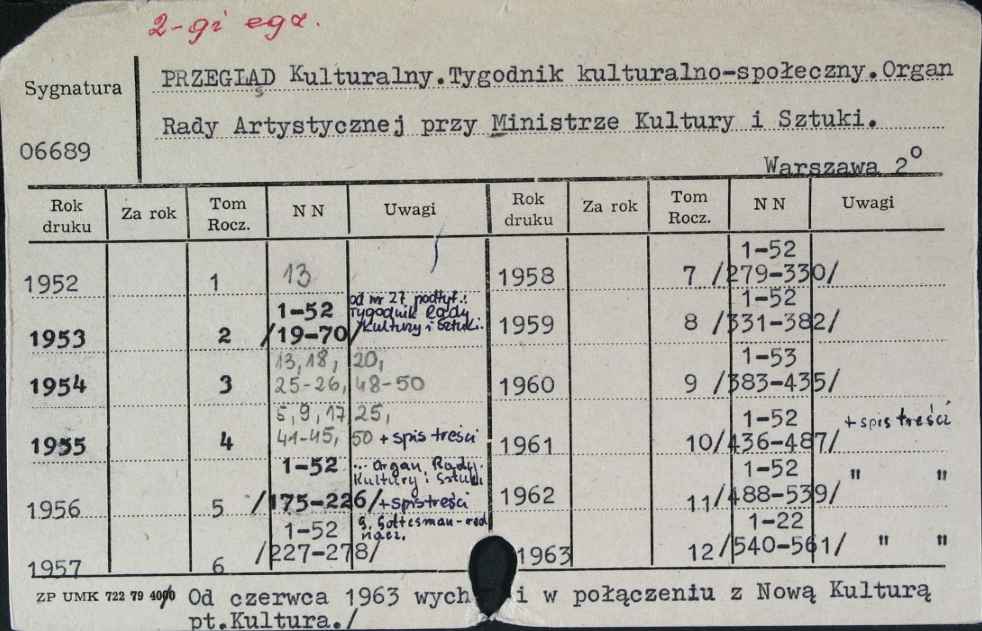 2-gi egz.
Sygnatura
06689
PRZEGLĄD Kulturalny.Tygodnik kulturalno-społeczny.Organ
Rady Artystycznej przy Ministrze Kultury i Sztuki.
Warszawa 2°
Rok druku Za rok Tom Rocz. NN Uwagi Rok druku Za rok Tom Rocz. NN Uwagi
1952 1 13
1953 2 1-52 /19-70/ od nr 27 podtyt.: Tygodnik Rady Kultury i Sztuki.
1954 3 13, 18, 20, 25-26, 48-50
1955 4 5, 9, 17, 25, 41-45, 50 + spis treści
1956 5 1-52 /175-226/ ... Organ Rady Kultury i Sztuki +spis treści
1957 6 1-52 /227-278/ G. Gottesman-red nacz.
1958 7 1-52 /279-330/
1959 8 1-52 /331-382/
1960 9 1-53 /383-435/
1961 10 1-52 /436-487/ + spis treści
1962 11 1-52 /488-539/ " "
1963 12 1-22 /540-561/ " "
ZP UMK 722 79 4000
/ Od czerwca 1963 wych i w połączeniu z Nową Kulturą
pt.Kultura./